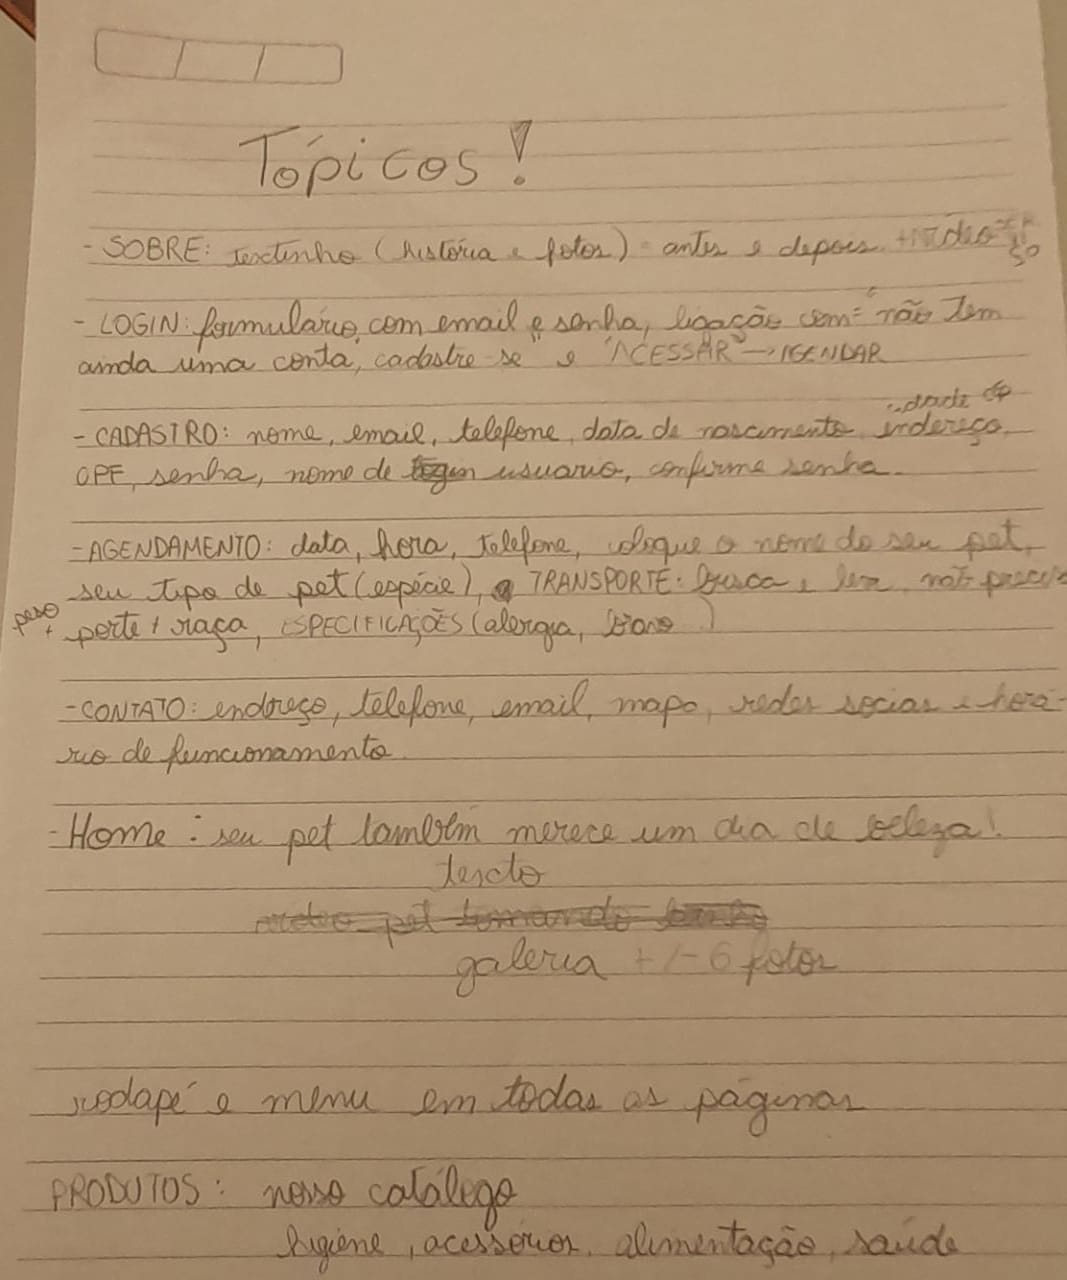 Tópicos!
- SOBRE: textinho (história e fotos) antes e depois + vídeo
- LOGIN: formulário, com email e senha, ligação com "não tem
ainda uma conta, cadastre-se" e "ACESSAR" → AGENDAR
cidade
- CADASTRO: nome, email, telefone, data de nascimento, endereço,
CPF, senha, nome de usuario, confirme senha.
- AGENDAMENTO: data, hora, telefone, coloque o nome do seu pet,
seu tipo de pet (espécie), TRANSPORTE: busca e leva, não precisa
peso + porte + raça, ESPECIFICAÇÕES (alergia, )
- CONTATO: endereço, telefone, email, mapa, redes sociais e horá-
rio de funcionamento.
- Home: seu pet também merece um dia de beleza!
texto
video pet tomando banho
galeria +/- 6 fotos
rodapé e menu em todas as páginas
PRODUTOS: nosso catálogo
higiene, acessórios, alimentação, saúde